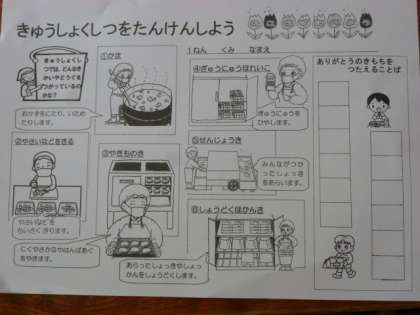 きゅうしょくしつをたんけんしよう
1ねん　くみ　なまえ
きゅうしょくし
つでは、どんなき
かいやどうぐを
つかっているの
かな?
①かま
おかずをにたり、いため
たりします。
②やさいなどをきる
やさいなどを
ちいさくきります。
③やきものき
にくやさかなやはんばあぐ
をやきます。
④ぎゅうにゅうほれいこ
ぎゅうにゅうを
ひやします。
⑤せんじょうき
みんながつか
ったしょっき
をあらいます。
⑥しょうどくほかんき
あらったしょっきやしょっ
かんをしょうどくします。
ありがとうのきもちを
つたえることば